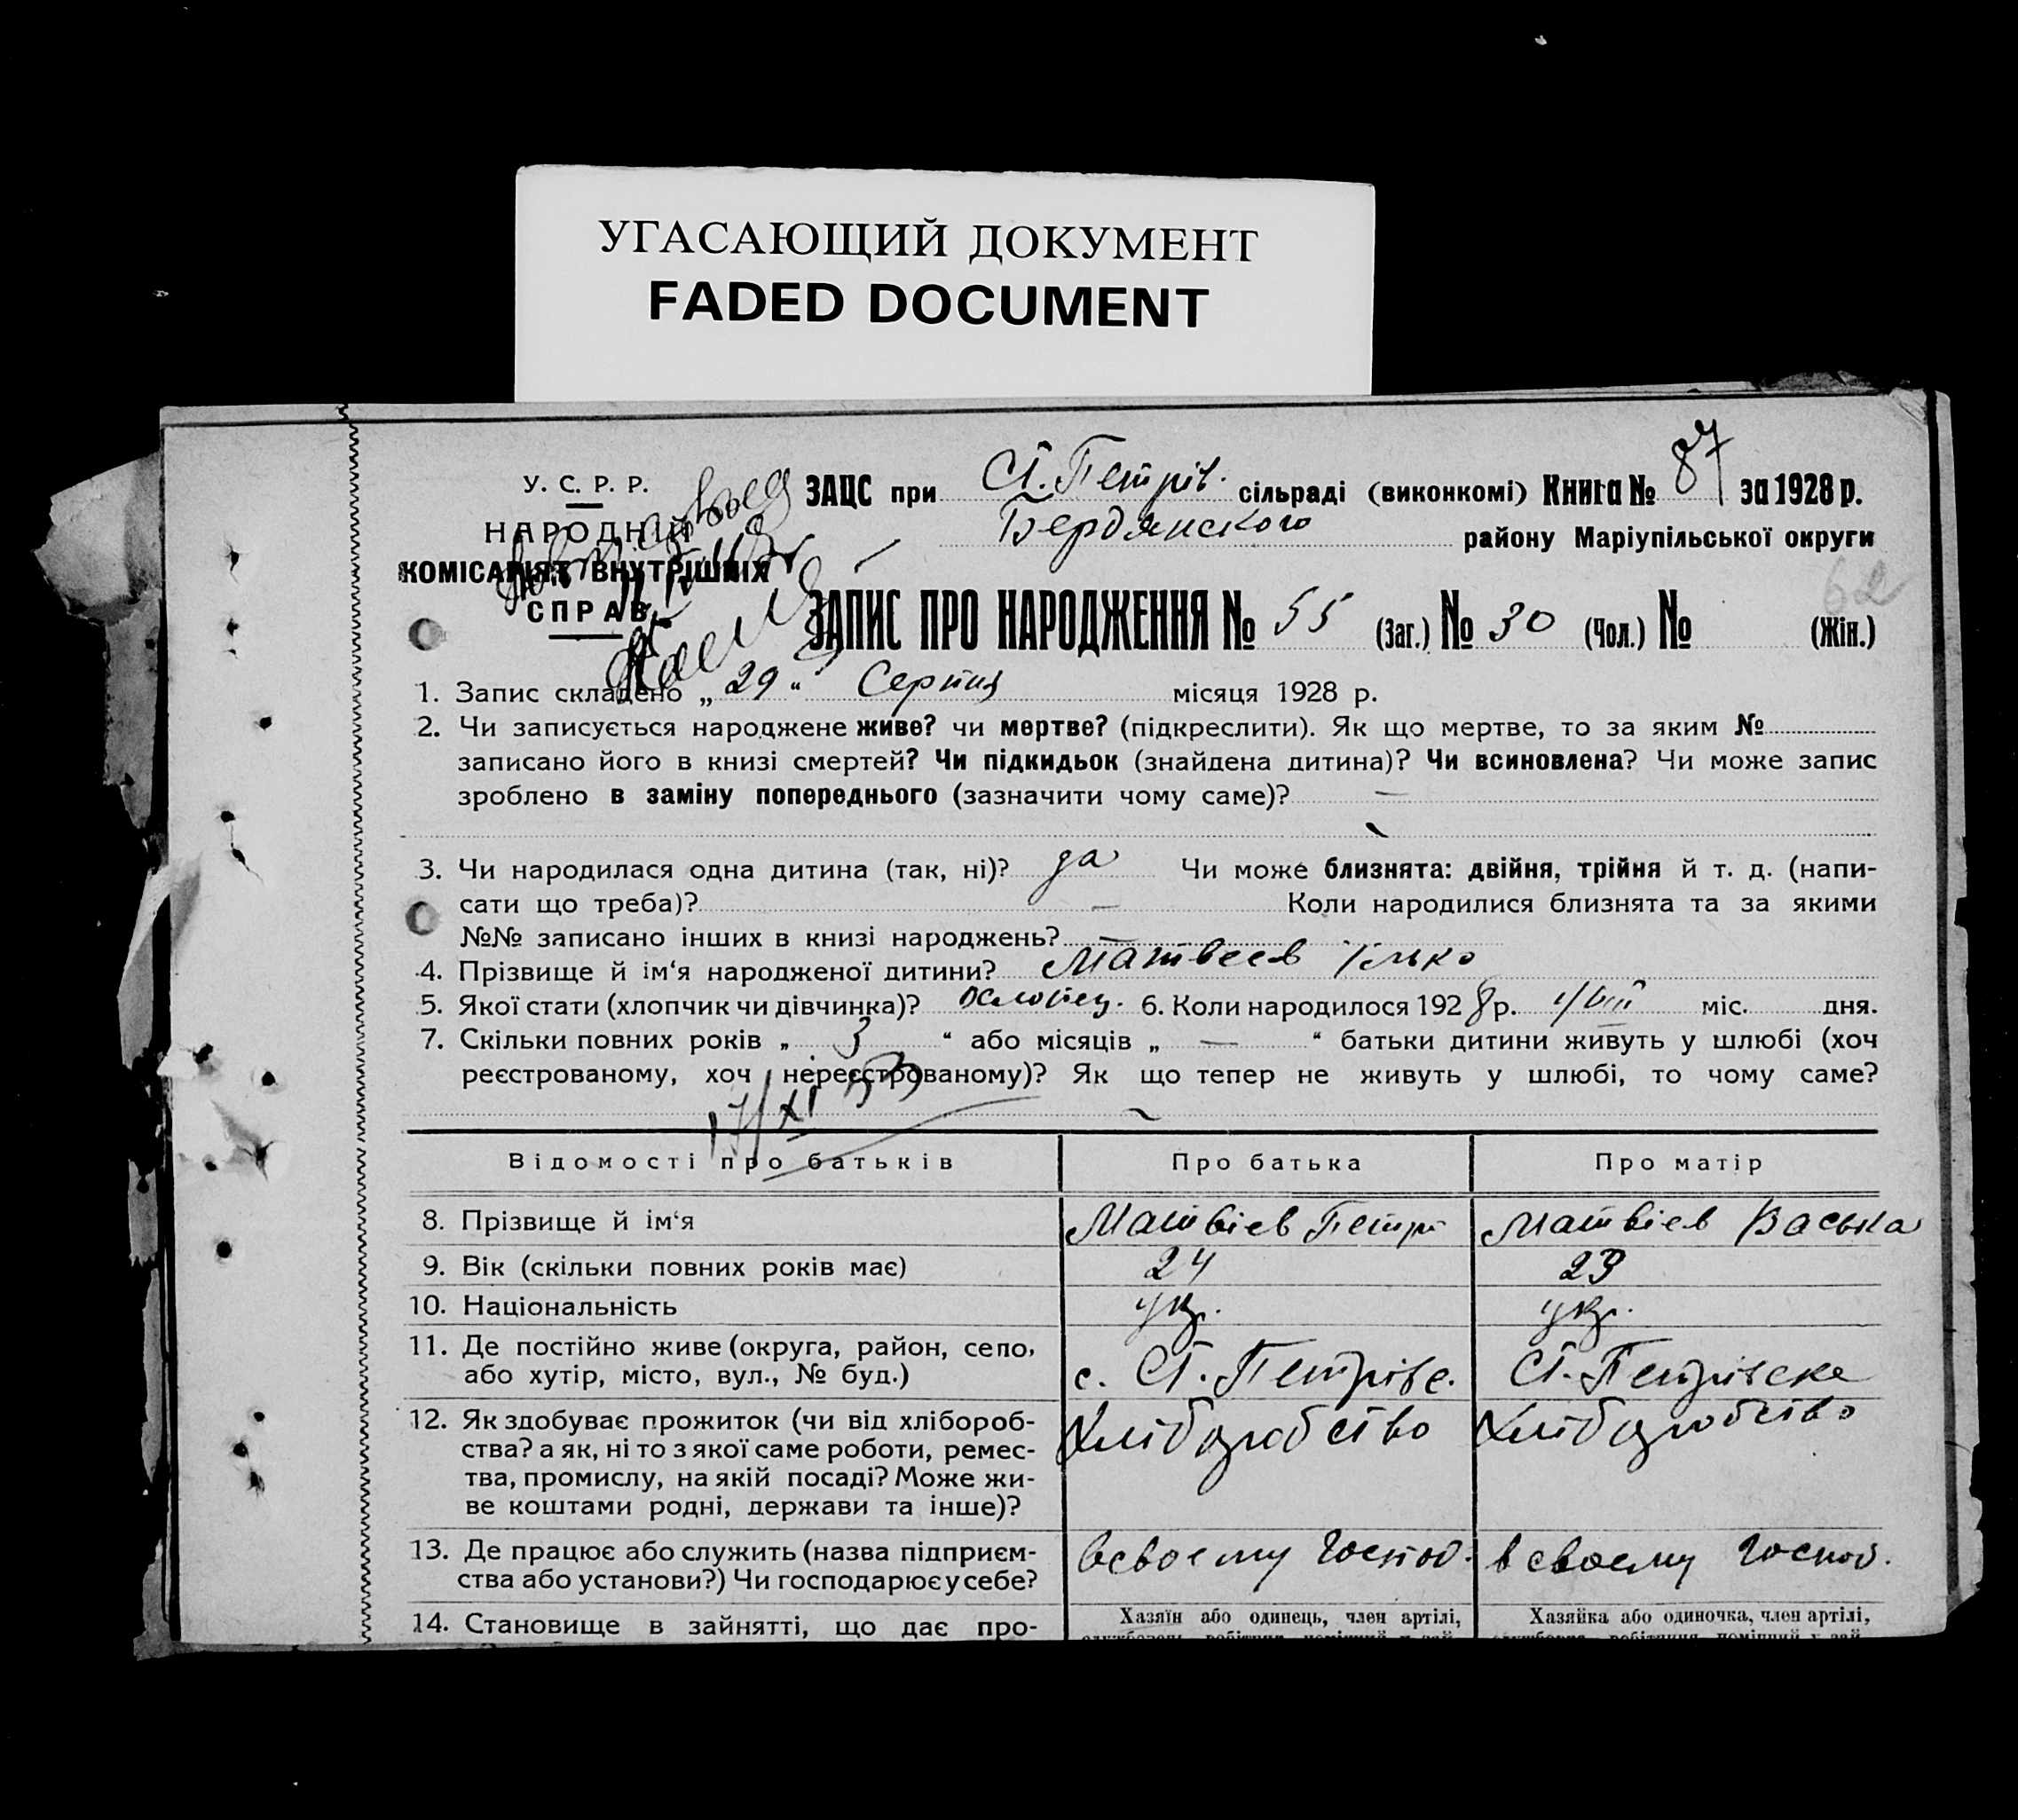 УГАСАЮЩИЙ ДОКУМЕНТ
FADED DOCUMENT
У. С. Р. Р.
НАРОДНІЙ
КОМІСАРІЯТ ВНУТРІШНІХ
СПРАВ
ЗАЦС при Ст. Петрів. сільраді (виконкомі) Книга № 87 за 1928 р.
Бердянского району Маріупільської округи
62
ЗАПИС ПРО НАРОДЖЕННЯ № 55 (Заг.) № 30 (Чол.) № (Жін.)
1. Запис складено „ 29 “ Серпня місяця 1928 р.
2. Чи записується народжене живе? чи мертве? (підкреслити). Як що мертве, то за яким №
записано його в книзі смертей? Чи підкидьок (знайдена дитина)? Чи всиновлена? Чи може запис
зроблено в заміну попереднього (зазначити чому саме)? —
3. Чи народилася одна дитина (так, ні)? да Чи може близнята: двійня, трійня й т. д. (напи-
сати що треба)? — Коли народилися близнята та за якими
№№ записано інших в книзі народжень? —
4. Прізвище й ім‘я народженої дитини? Матвеев Ілько
5. Якої стати (хлопчик чи дівчинка)? 6. Коли народилося 1928 р. міс. дня.
7. Скільки повних років „ 3 “ або місяців „ — “ батьки дитини живуть у шлюбі (хоч
реєстрованому, хоч нереєстрованому)? Як що тепер не живуть у шлюбі, то чому саме?
17/XI 53
Відомості про батьків Про батька Про матір
8. Прізвище й ім‘я Матвієв Петро Матвієв Васька
9. Вік (скільки повних років має) 24 23
10. Національність укр. укр.
11. Де постійно живе (округа, район, село,
або хутір, місто, вул., № буд.) с. Ст. Петрівс. Ст. Петрівска
12. Як здобуває прожиток (чи від хлібороб-
ства? а як, ні то з якої саме роботи, ремес-
тва, промислу, на якій посаді? Може жи-
ве коштами родні, держави та інше)? Хліборобство Хліборобство
13. Де працює або служить (назва підприєм-
ства або установи?) Чи господарює у себе? в своему господ. в своему господ.
14. Становище в зайнятті, що дає про- Хазяїн або одинець, член артілі, Хазяйка або одиночка, член артілі,